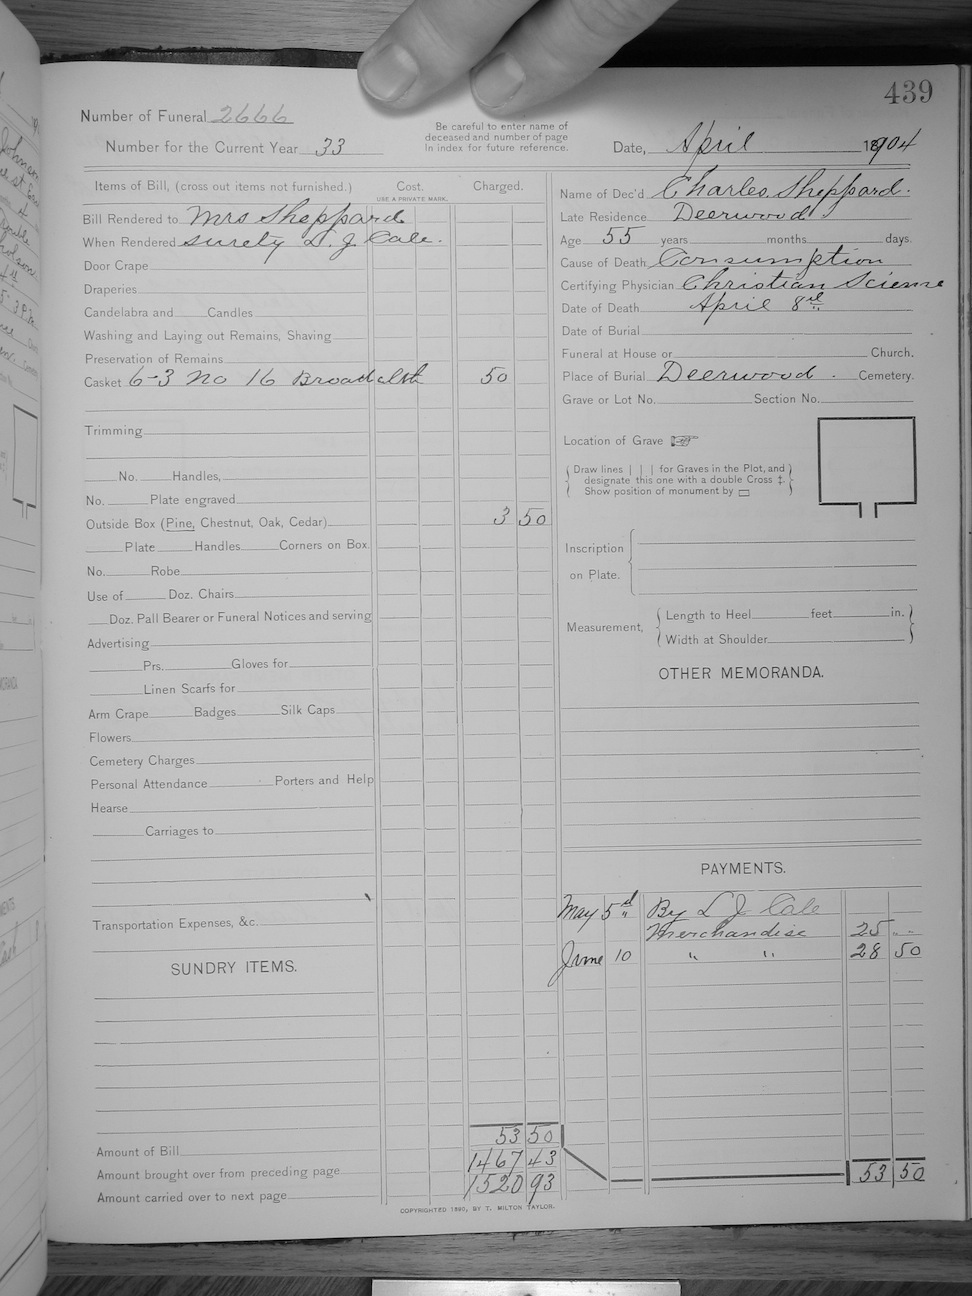 439
Number of Funeral 2666
Number for the Current Year 33
Be careful to enter name of
deceased and number of page
in index for future reference.
Date, April 1904
Items of Bill, (cross out items not furnished.) Cost. Charged.
USE A PRIVATE MARK.
Bill Rendered to Mrs Sheppard
When Rendered surety L. J. Cale.
Door Crape
Draperies
Candelabra and Candles
Washing and Laying out Remains, Shaving
Preservation of Remains
Casket 6-3 No 16 Broadcloth 50
Trimming
No. Handles,
No. Plate engraved
Outside Box (Pine, Chestnut, Oak, Cedar) 3 50
Plate Handles Corners on Box.
No. Robe
Use of Doz. Chairs
Doz. Pall Bearer or Funeral Notices and serving
Advertising
Prs. Gloves for
Linen Scarfs for
Arm Crape Badges Silk Caps
Flowers
Cemetery Charges
Personal Attendance Porters and Help
Hearse
Carriages to
Transportation Expenses, &c.
SUNDRY ITEMS.
Amount of Bill 53 50
Amount brought over from preceding page 1467 43
Amount carried over to next page 1520 93
COPYRIGHTED 1890, BY T. MILTON TAYLOR.
Name of Dec'd Charles Sheppard.
Late Residence Deerwood
Age 55 years months days.
Cause of Death Consumption
Certifying Physician Christian Science
Date of Death April 8
Date of Burial
Funeral at House or Church.
Place of Burial Deerwood. Cemetery.
Grave or Lot No. Section No.
Location of Grave
Draw lines | | | for Graves in the Plot, and
designate this one with a double Cross ‡.
Show position of monument by ▭
Inscription
on Plate.
Measurement, Length to Heel feet in.
Width at Shoulder
OTHER MEMORANDA.
PAYMENTS.
May 5 By L J Cale
Merchandise 25 " "
June 10 " " 28 50
53 50